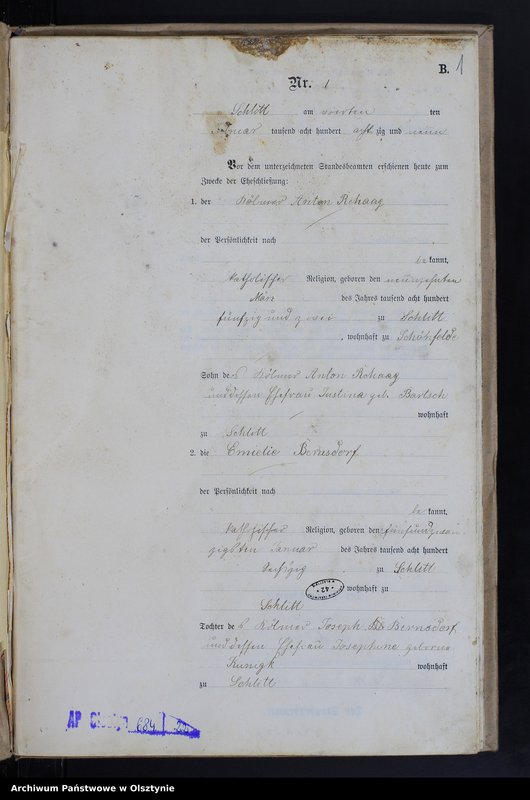 B. 1
Nr. 1
Schlitt am vierten ten
Februar tausend acht hundert acht zig und neun
Vor dem unterzeichneten Standesbeamten erschienen heute zum
Zwecke der Eheschließung:
1. der Kölmer Anton Rehaag
der Persönlichkeit nach
be kannt,
katholischer Religion, geboren den neunzehnten
März des Jahres tausend acht hundert
fünfzig und zwei zu Schlitt
, wohnhaft zu Schönfelde
Sohn des Kölmer Anton Rehaag
und dessen Ehefrau Justina geb. Bartsch
wohnhaft
zu Schlitt
2. die Emielie Bernsdorf
der Persönlichkeit nach
be kannt,
katholischer Religion, geboren den fünfundzwan
zigsten Januar des Jahres tausend acht hundert
sechzig zu Schlitt
42 wohnhaft zu
Schlitt
Tochter des Kölmer Joseph Bernsdorf
und dessen Ehefrau Josephine geborne
Kunigk wohnhaft
zu Schlitt
AP 684
Archiwum Państwowe w Olsztynie